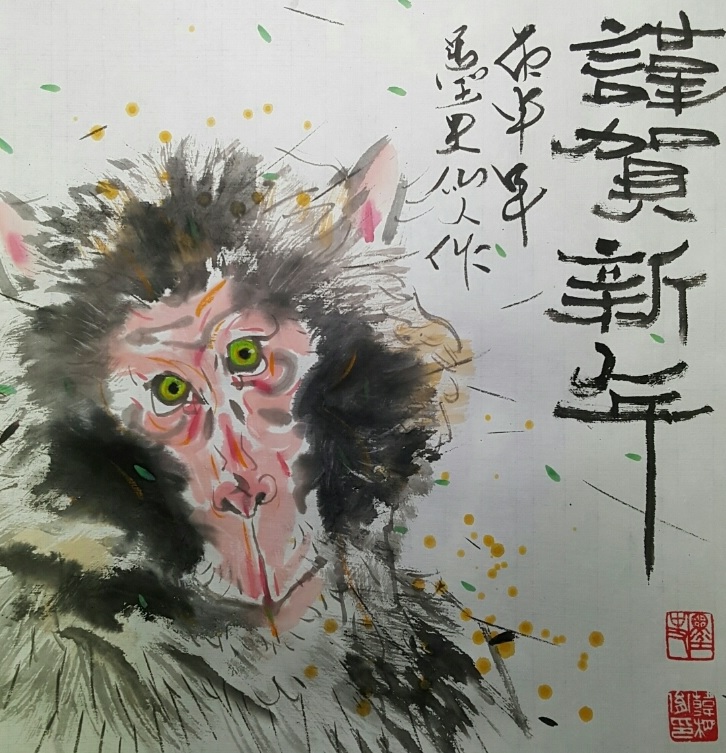 謹賀新年
丙申年
墨史仙人作
墨史